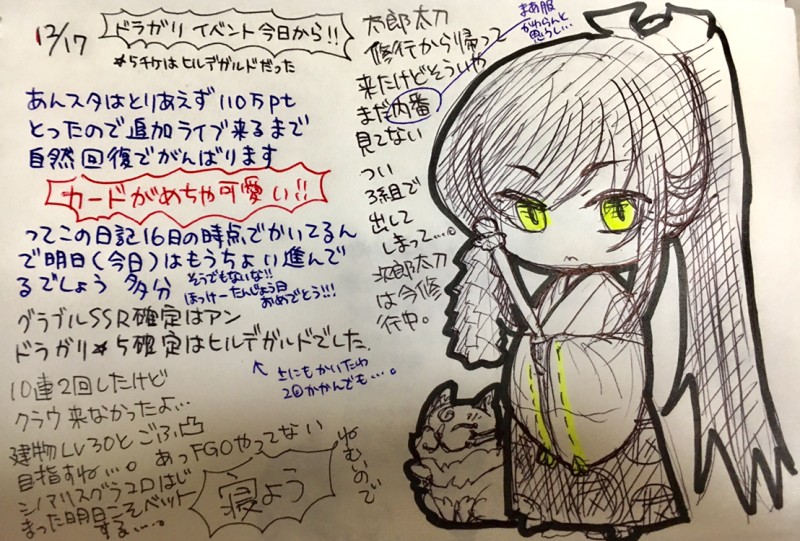 12/17
ドラガリ イベント今日から!!
☆5チケはヒルデガルドだった
あんスタはとりあえず110万pt
とったので追加ライブ来るまで
自然回復でがんばります
カードがめちゃ可愛い!!
ってこの日記16日の時点でかいてるん
で明日(今日)はもうちょい進んで
るでしょう 多分
そうでもないな!!
ほっけーたんじょう日
おめでとう!!!
グラブルSSR確定はアン
ドラガリ☆5確定はヒルデガルドでした。
↑上にもかいたわ
2回かかんでも…。
10連2回したけど
クラウ来なかったよ…
建物Lv30とごぶ凸
目指すね…。あっFGOやってない
シノアリスグラ2Dはじ
まった明日こそベット
する…。
ねむいので
寝よう
太郎太刀
修行から帰って
来たけどそういや
まだ内番
見てない
まあ服
かわらんと
思うし…
つい
3組で
出して
しまって…。
次郎太刀
は今修
行中。